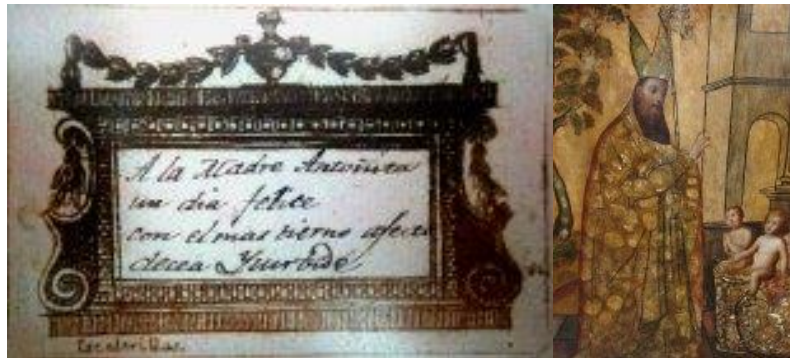 A la Madre Antoñita
un dia felice
con el mas tierno afecto
decea Yturbide
Escalerillas.